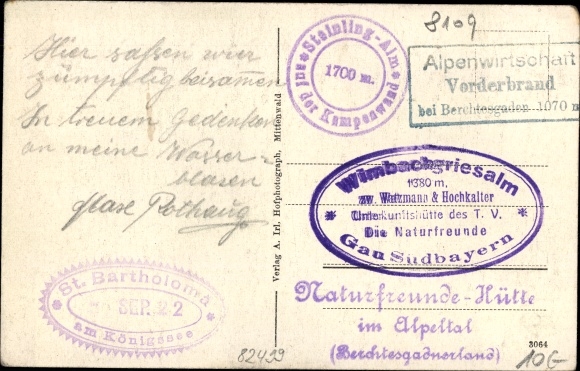 Hier saßen wir
zümpftig beisamen
In treuem Gedenken
an meine Wasser-
blasen
Max Rothaug
St. Bartholomä
SEP. 22
am Königssee
82499
Verlag A. Irl, Hofphotograph, Mittenwald
Steinling-Alm
1700 m.
auf der Kampenwand
8109
Alpenwirtschaft
Vorderbrand
bei Berchtesgaden 1070 m
Wimbachgriesalm
1380 m.
zw. Watzmann & Hochkalter
Unterkunftshütte des T. V.
Die Naturfreunde
Gau Südbayern
Naturfreunde-Hütte
im Alpeltal
(Berchtesgadnerland)
3064
10€